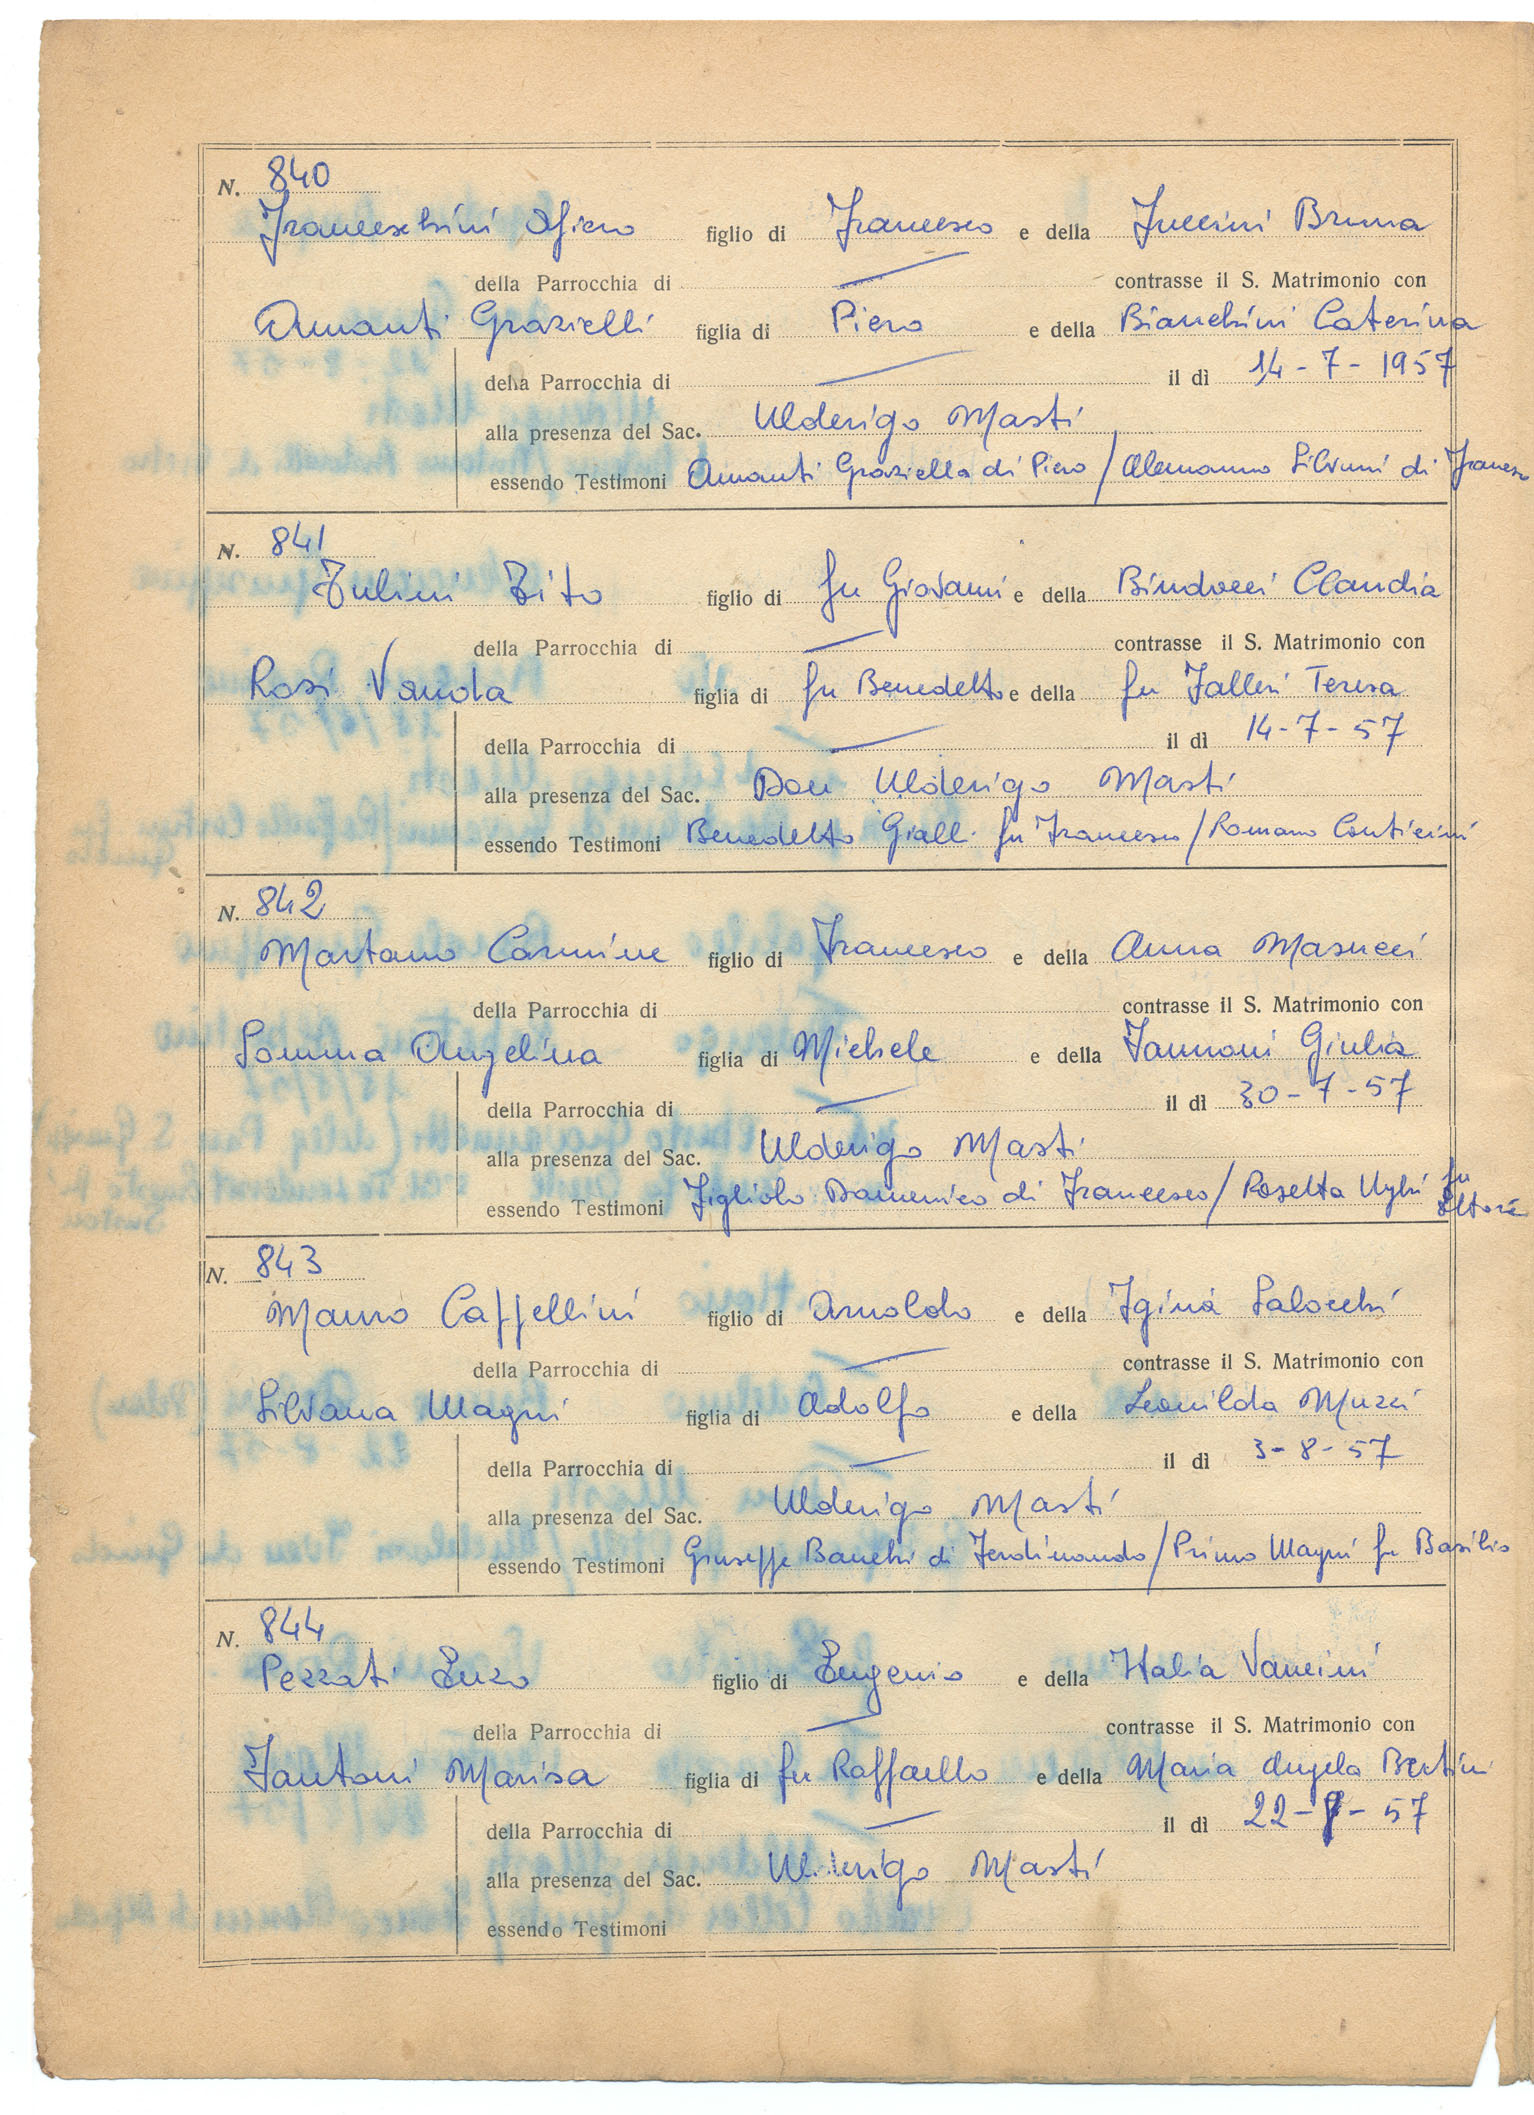 N. 840
Franceschini Asiero figlio di Francesco e della Fuccini Bruna
della Parrocchia di contrasse il S. Matrimonio con
Amanti Grazielli figlia di Piero e della Bianchini Caterina
della Parrocchia di il dì 14-7-1957
alla presenza del Sac. Ulderigo Masti
essendo Testimoni Amanti Graziella di Piero / Alemanno Silvani di Francesco
N. 841
Tulini Tito figlio di fu Giovanni e della Bindocci Claudia
della Parrocchia di contrasse il S. Matrimonio con
Rosi Vanda figlia di fu Benedetto e della fu Falleri Teresa
della Parrocchia di il dì 14-7-57
alla presenza del Sac. Don Ulderigo Masti
essendo Testimoni Benedetto Gialli fu Francesco / Romano Conticini
N. 842
Martano Carmine figlio di Francesco e della Anna Masucci
della Parrocchia di contrasse il S. Matrimonio con
Somma Angelina figlia di Michele e della Iannoni Giulia
della Parrocchia di il dì 30-7-57
alla presenza del Sac. Ulderigo Masti
essendo Testimoni Figliolo Domenico di Francesco / Rosetta Ughi fu Ettore
N. 843
Mauro Caffellini figlio di Arnoldo e della Igina Salocchi
della Parrocchia di contrasse il S. Matrimonio con
Silvana Magni figlia di Adolfo e della Leonilda Muzzi
della Parrocchia di il dì 3-8-57
alla presenza del Sac. Ulderigo Masti
essendo Testimoni Giuseppe Banchi di Ferdinando / Primo Magni fu Basilio
N. 844
Pezzati Enzo figlio di Eugenio e della Italia Vancini
della Parrocchia di contrasse il S. Matrimonio con
Fantoni Marisa figlia di fu Raffaello e della Maria Angela Bertini
della Parrocchia di il dì 22- -57
alla presenza del Sac. Ulderigo Masti
essendo Testimoni